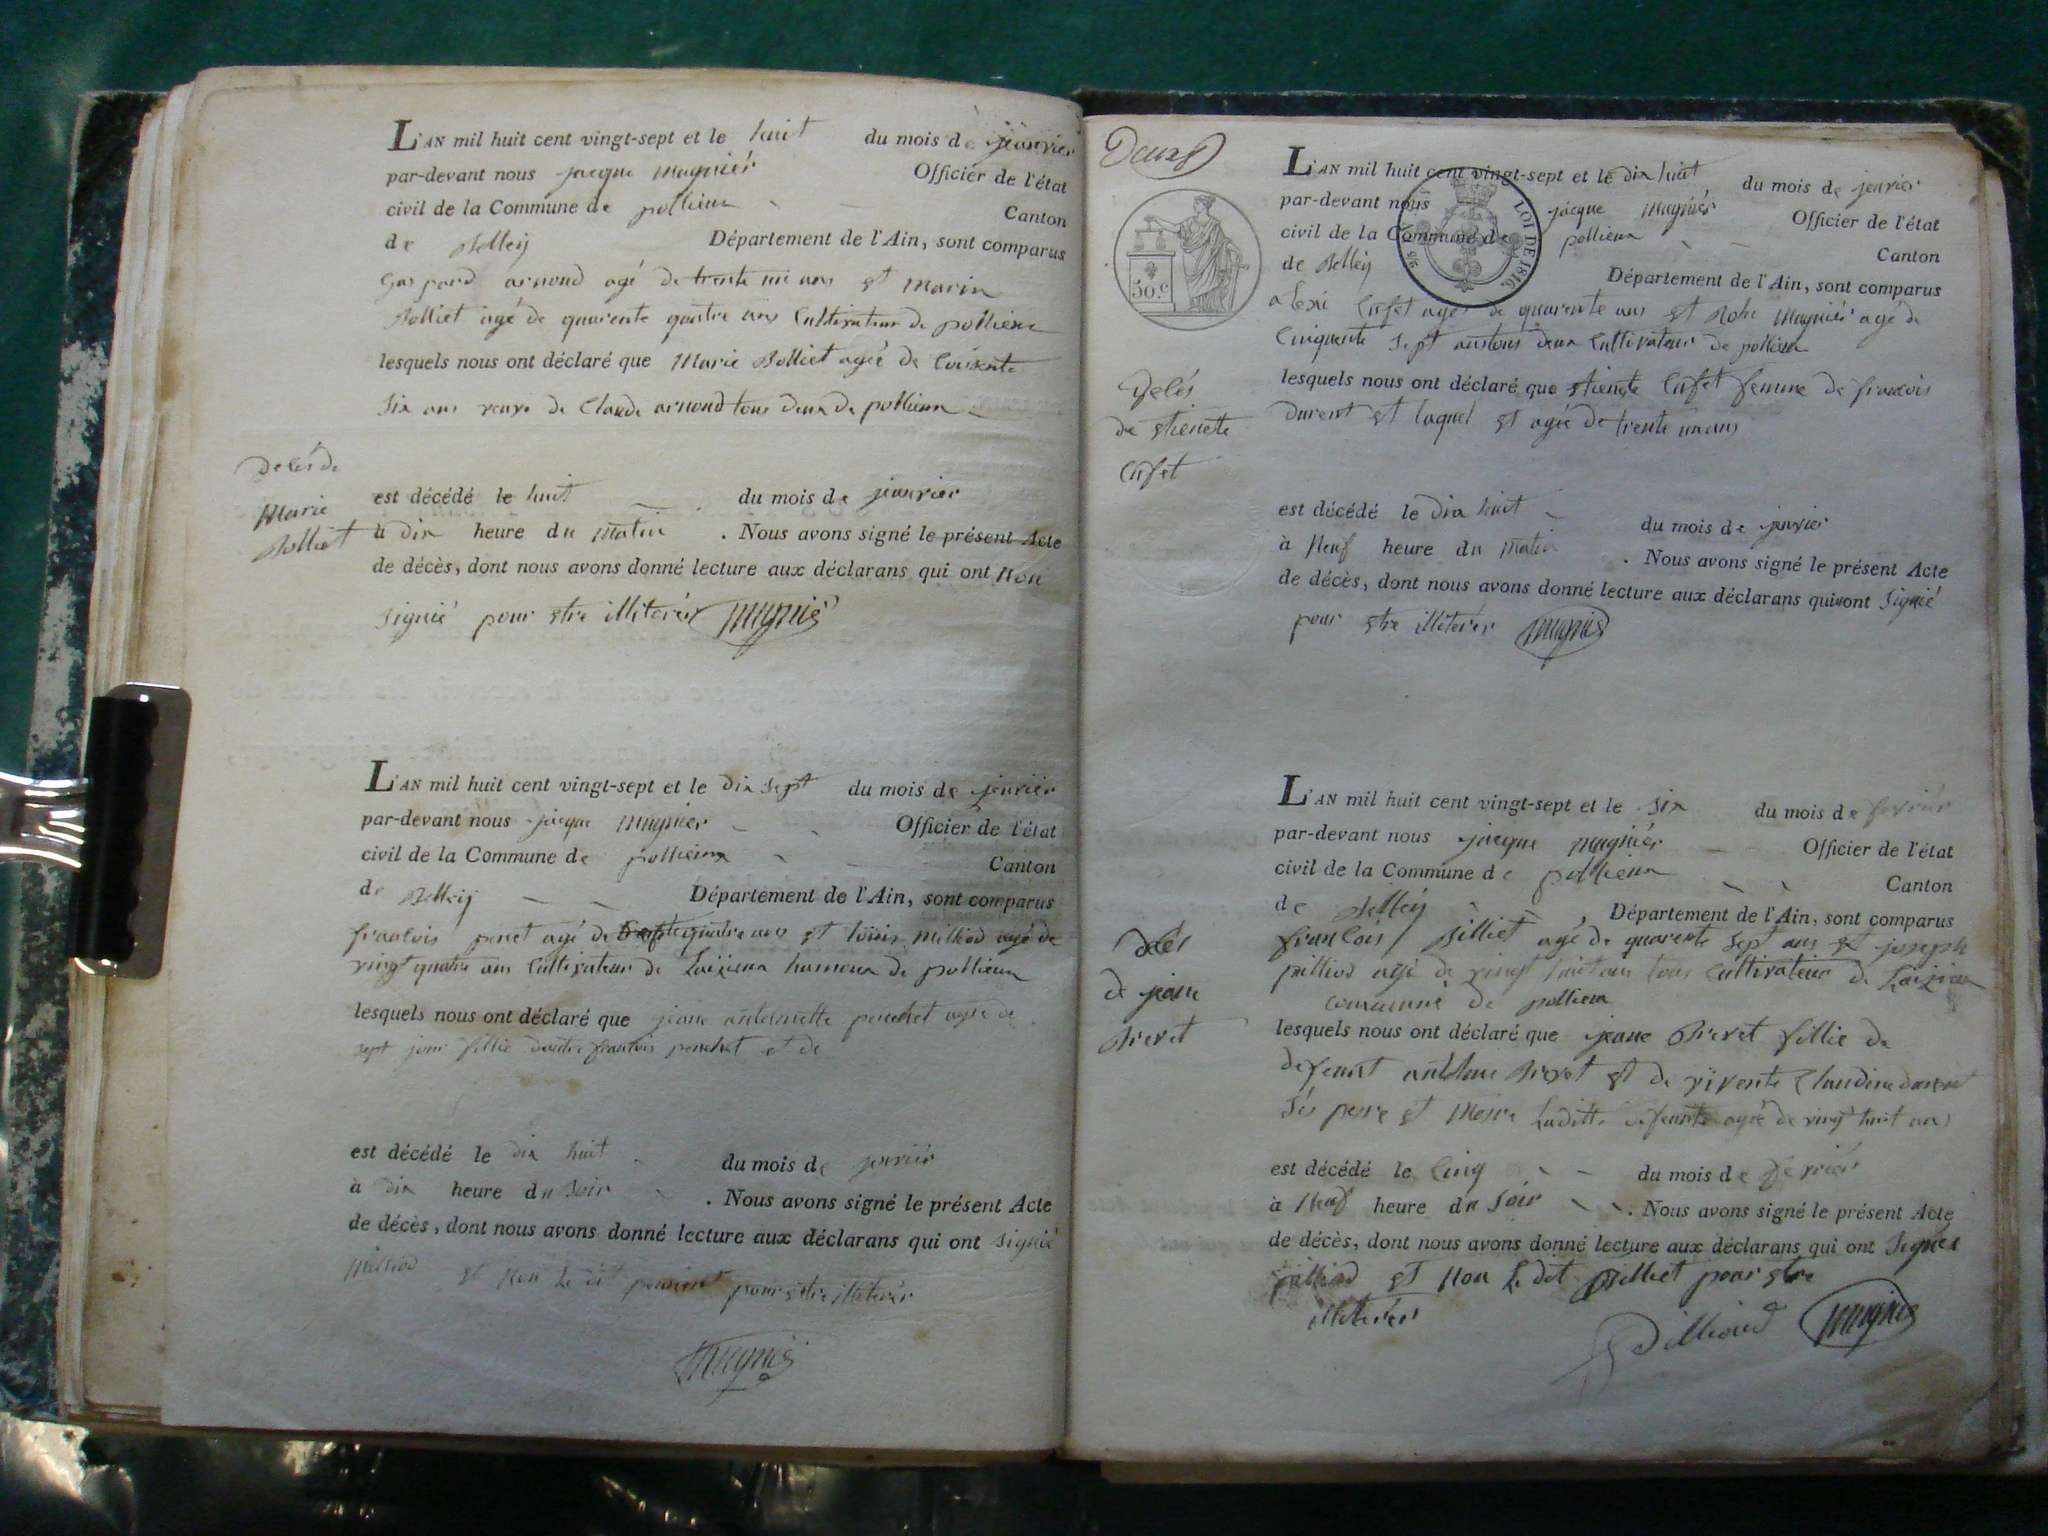 L'AN mil huit cent vingt-sept et le huit du mois de jeanvier
par-devant nous jacque magniér Officier de l'état
civil de la Commune de pollieux Canton
de Belley Département de l'Ain, sont comparus
gaspard arnond agé de trente un ans et marin
Bolliet agé de quarente quatre ans Cultivateur de pollieux
lesquels nous ont déclaré que Marie Bolliet agée de
six ans veuve de Claude arnond tous deux de pollieux
Decés de
Marie
Bolliet
est décédé le huit du mois de jeanvier
à dix heure du matin . Nous avons signé le présent Acte
de décès, dont nous avons donné lecture aux déclarans qui ont non
signié pour etre illiterér magnié
L'AN mil huit cent vingt-sept et le dix sept du mois de jenvier
par-devant nous jacque magniér Officier de l'état
civil de la Commune de pollieux Canton
de Belley Département de l'Ain, sont comparus
francois agé de quatre ans et louis milliod agé de
vingt quatre ans Cultivateur de hameux de pollieux
lesquels nous ont déclaré que jeane antoinette agée de
sept jour fillie francois et de
est décédé le dix huit du mois de jenviér
à dix heure du soir . Nous avons signé le présent Acte
de décès, dont nous avons donné lecture aux déclarans qui ont signié
milliod et non le dit pour etre illiterér
magnié
Deux
L'AN mil huit cent vingt-sept et le dix huit du mois de jenvier
par-devant nous jacque magniér Officier de l'état
civil de la Commune de pollieux Canton
de Belley Département de l'Ain, sont comparus
50.c
LOI DE 1816
alexi Cufet agés de quarente ans et magniér agé de
Cinquente sept ans tous deux Cultivateur de pollieux
lesquels nous ont déclaré que etienete Cufet femme de francois
durent et laquel et agée de trente un ans
de etienete
Cufet
est décédé le dix huit du mois de jenvier
à neuf heure du matin . Nous avons signé le présent Acte
de décès, dont nous avons donné lecture aux déclarans qui ont signié
pour etre illiterér magnié
L'AN mil huit cent vingt-sept et le six du mois de fevriér
par-devant nous jacque magniér Officier de l'état
civil de la Commune de pollieux Canton
de Belley Département de l'Ain, sont comparus
francois Billiet agé de quarente sept ans et joseph
pilliod agé de vingt huit ans tous Cultivateur de
commune de pollieux
lesquels nous ont déclaré que jeane Brevet fillie de
defeunt antoine Brevet et de vivente Claudine durent
sés perre et merre laditte defeunte agée de vingt huit ans
decés
de jeane
Brevet
est décédé le cinq du mois de fevriér
à neuf heure du soir . Nous avons signé le présent Acte
de décès, dont nous avons donné lecture aux déclarans qui ont signiér
pilliod et non le dit Billiet pour etre
illiterér
Pillioud magnié